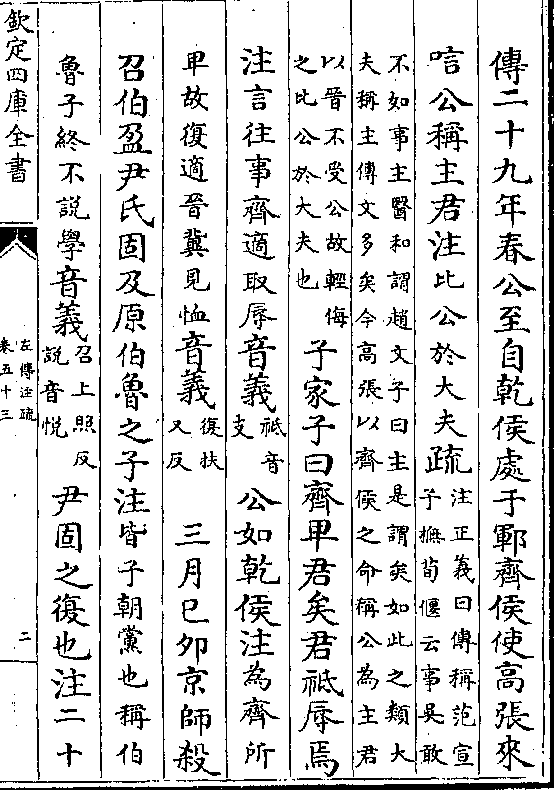 傳二十九年春公至自乾侯處于鄆齊侯使高張來
唁公稱主君注比公於大夫疏
注正義曰傳稱范宣
子撫荀偃云事吳敢
不如事主醫和謂趙文子曰主是謂矣如此之類大
夫稱主傳文多矣今高張以齊侯之命稱公為主君
以晉不受公故輕侮
之比公於大夫也
子家子曰齊卑君矣君祗辱焉
注言往事齊適取辱音義
祗音
支
公如乾侯注為齊所
卑故復適晉冀見恤音義
復扶
又反
三月巳夘京師殺
召伯盈尹氏固及原伯魯之子注皆子朝黨也稱伯
魯子終不說學音義
召上照反
說音悅
尹固之復也注二十
欽定四庫全書
左傳注疏
卷五十三
二